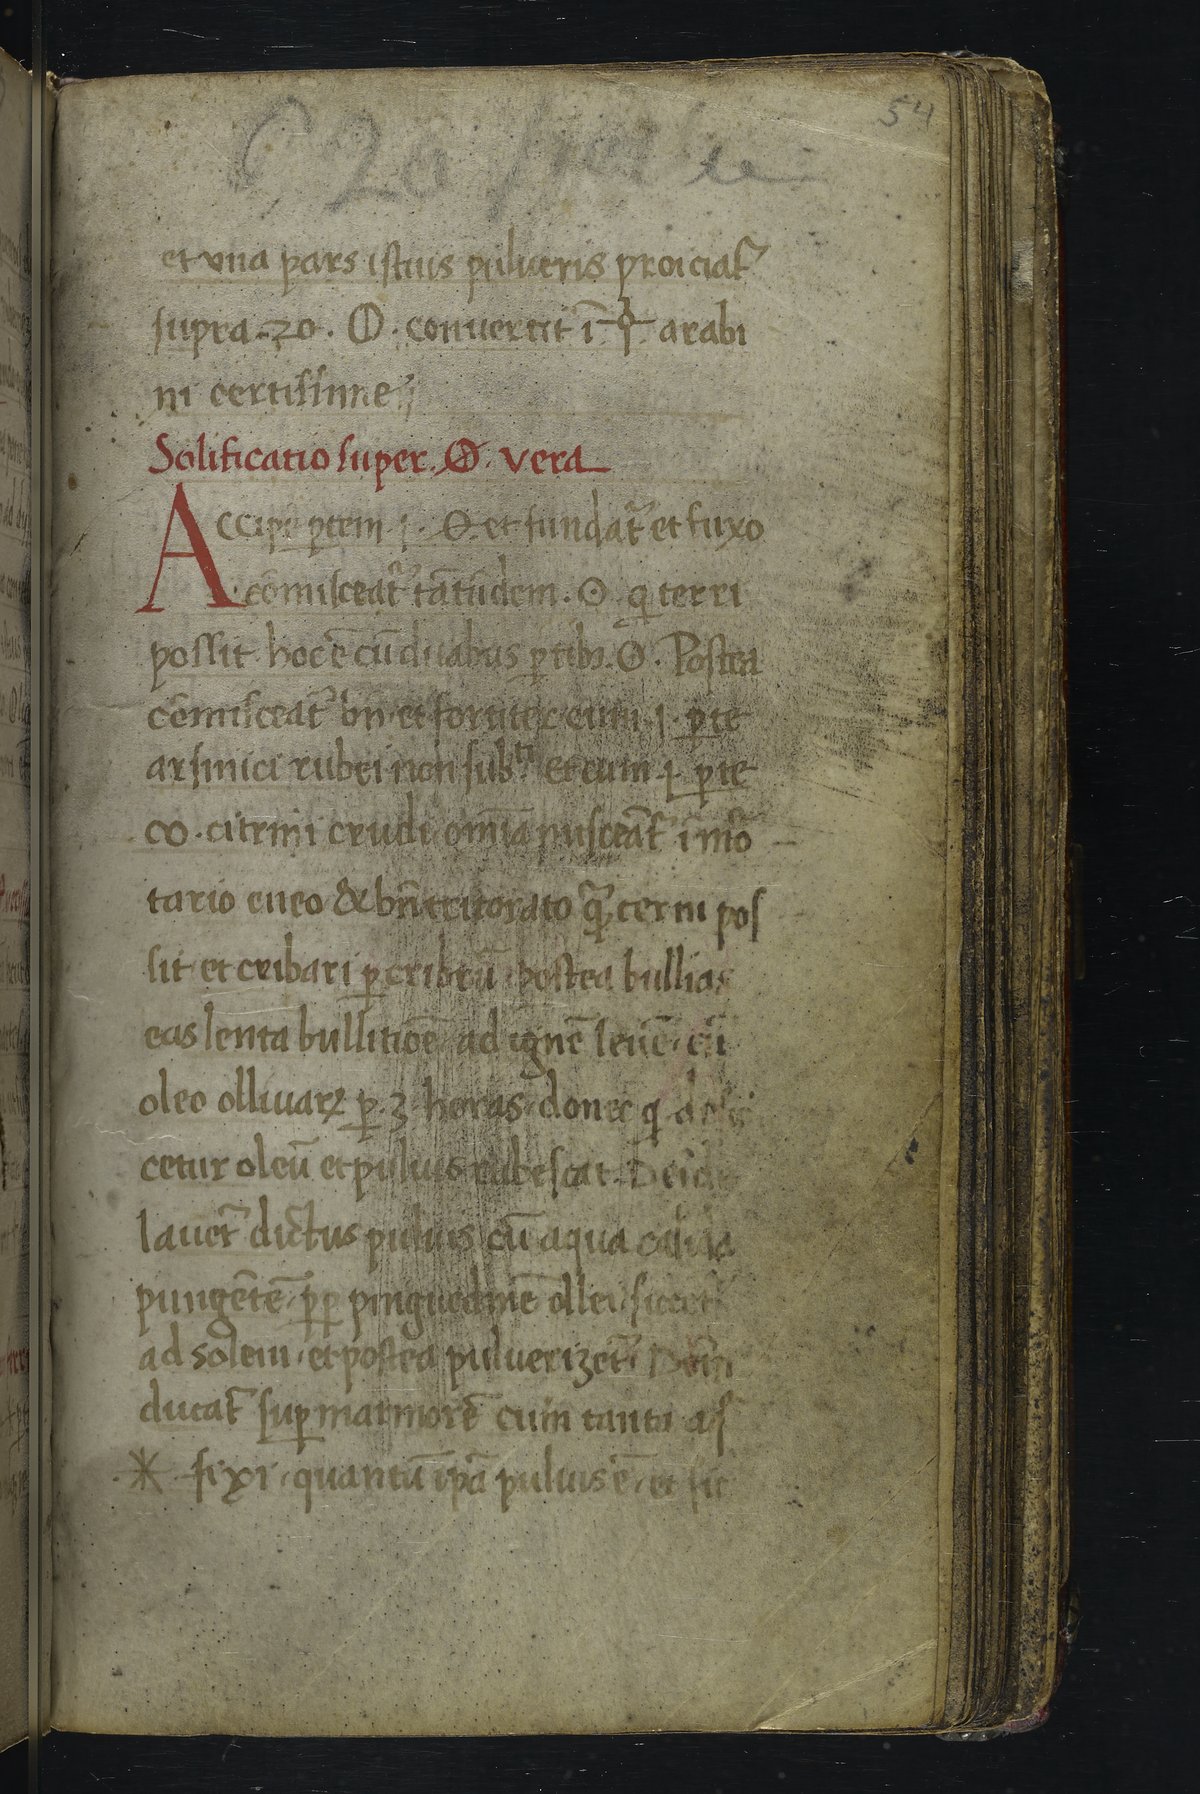 54
et vna pars istius pulueris proiciat᷑
supra .20. O. conuertit ī arabi
ni certissime
Solificatio super. O. vera
ACcipe ꝑtem j. et fundat᷑ et fuxo
cōmisceat᷑ tātūdem. ☉. q terri
possit hoc ē cū duabus ꝑtibꝫ. Postea
cōmisceat᷑ bn̄ et fortiter cum .j. ꝑte
arsinici rubei non subᵗⁱ et cum .j. ꝑte
co. citrini crudi omīa misceāt᷑ ī mō
tario eneo & bn̄ tritorato terni pos
sit et cribari ꝑ cribrū postea bullias
eas lenta bullitiōe ad ignē leuē cū
oleo olliuaꝝ ꝑ .3. horas donec q
cetur oleū et puluis rubescat. Deīde
lauet᷑ dictus puluis cū aqua calida
pungētē pinguedinē ollei siccet᷑
ad solem et postea puluerizet᷑
ducat᷑ suꝑ marmorē cum tanto
✳ fixi quantū ip̄a puluis ē et sic